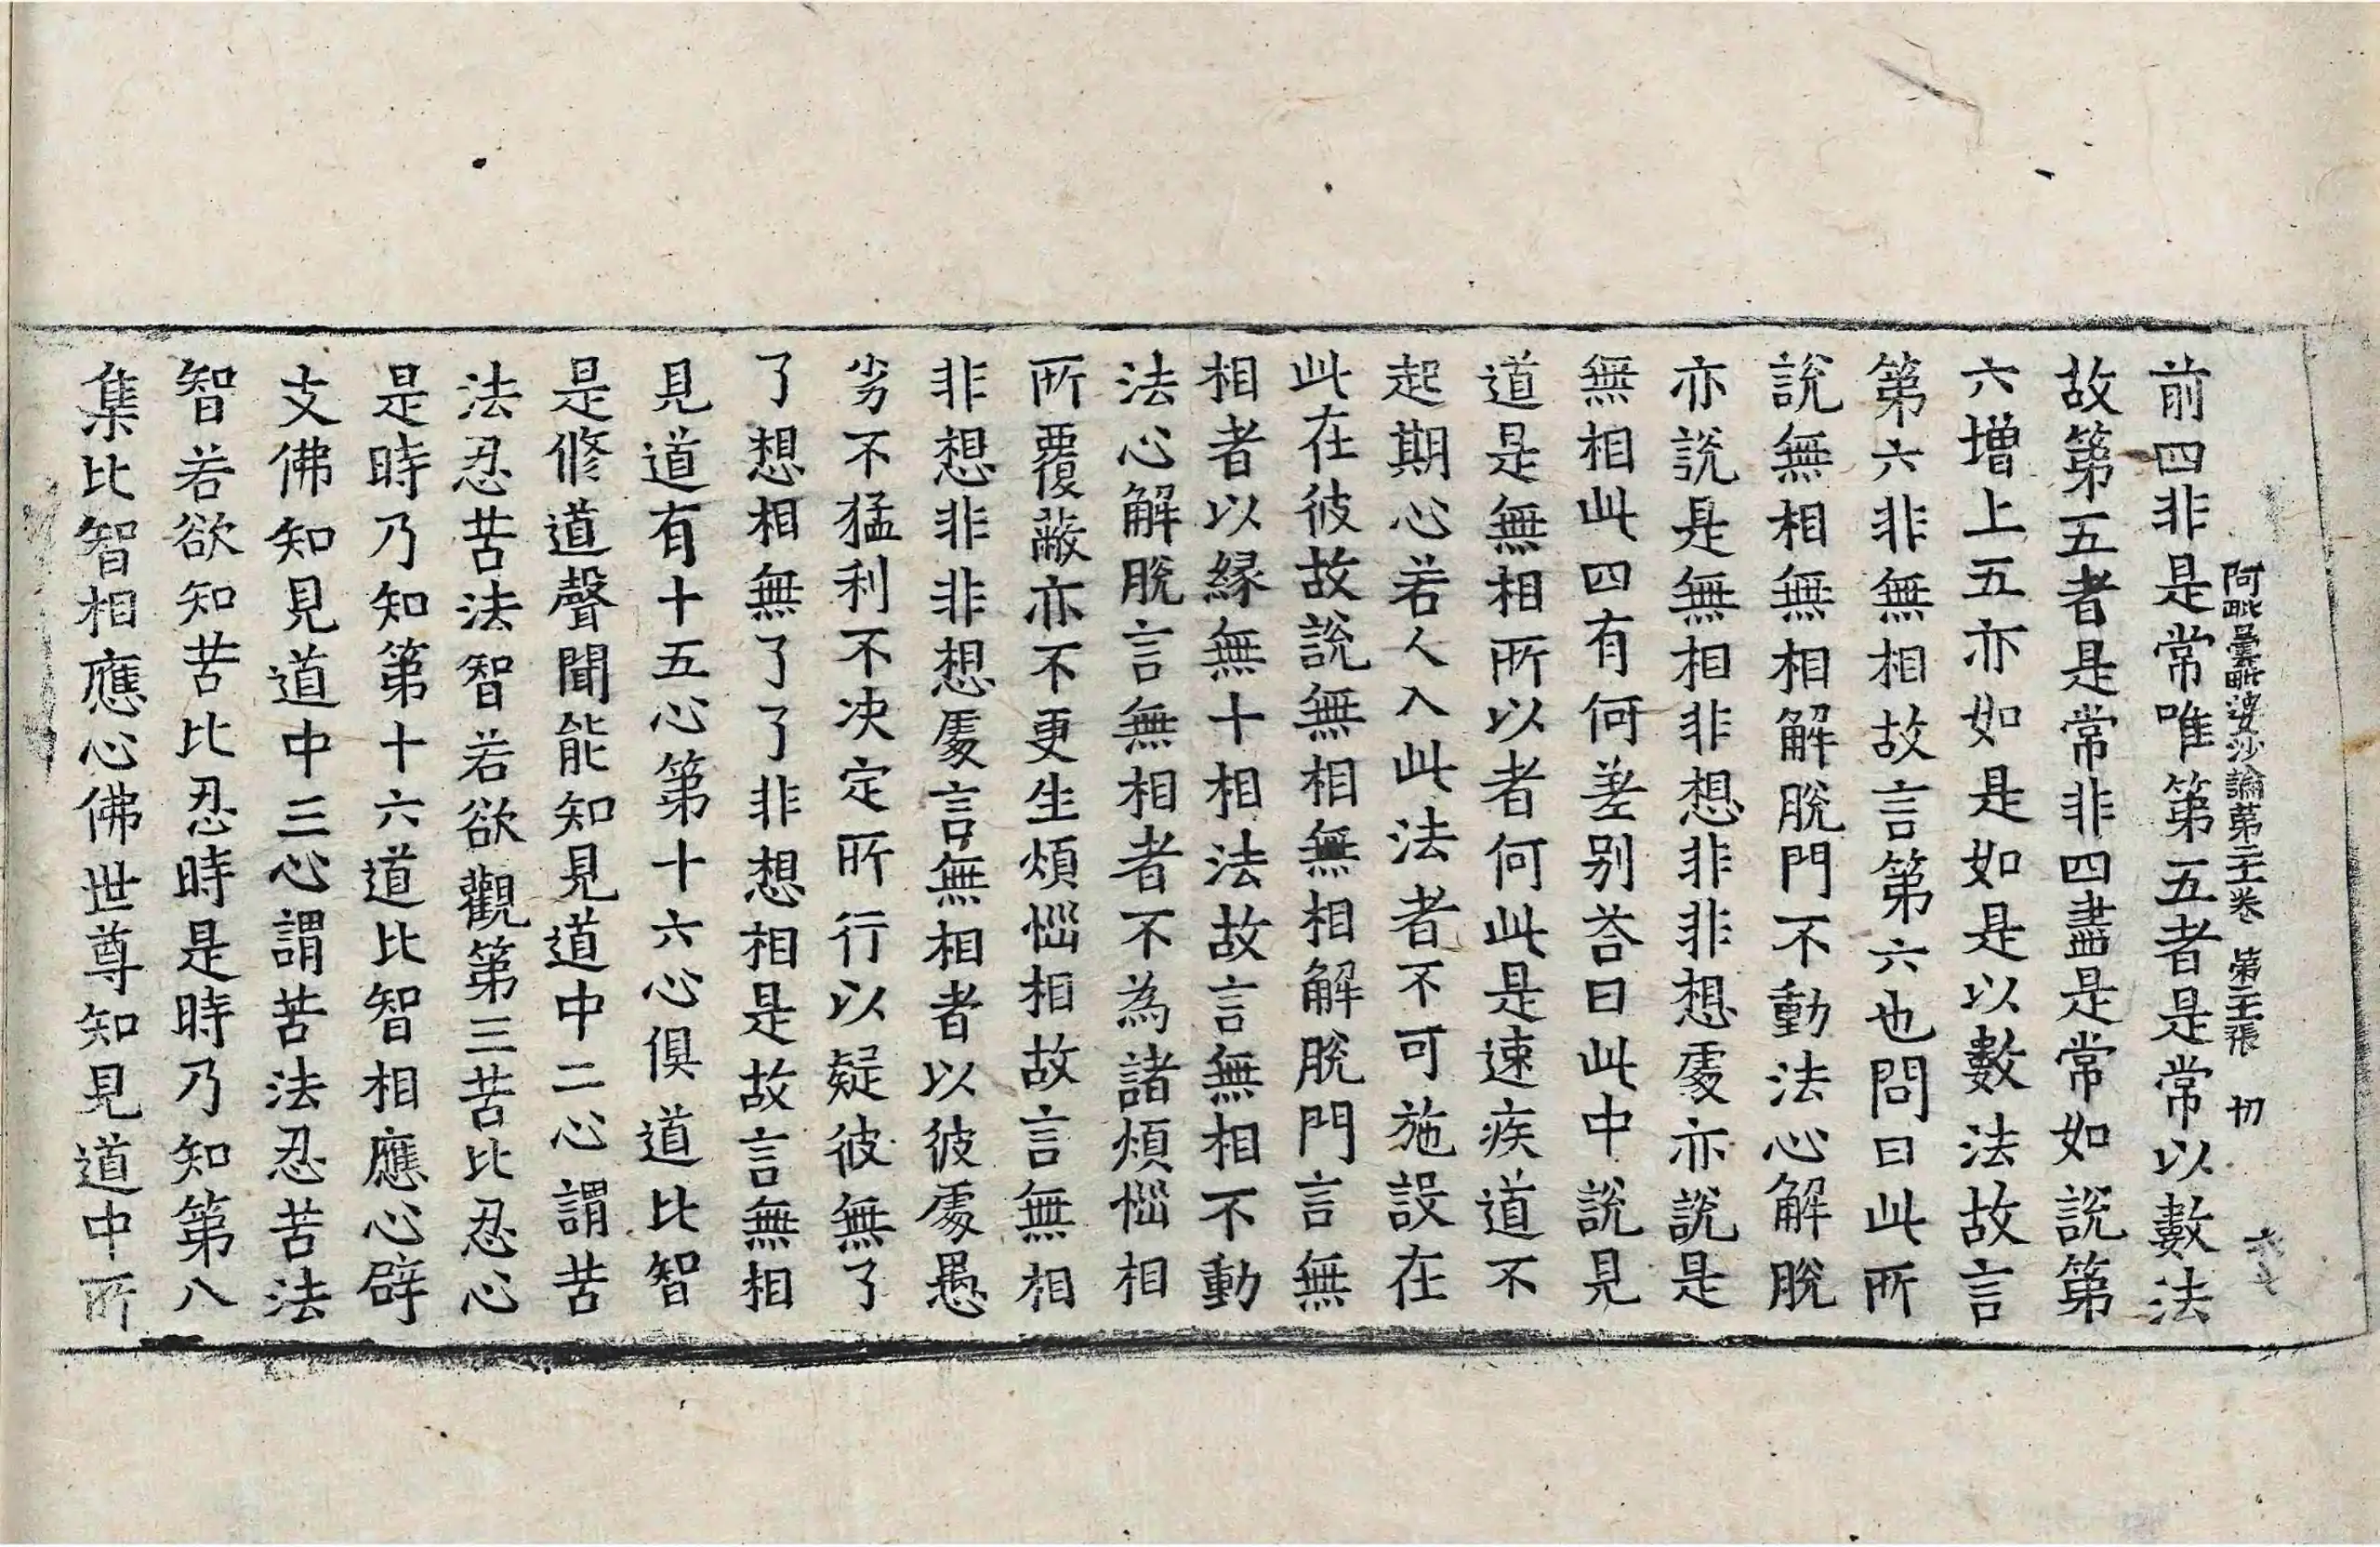 阿毗曇毗婆沙論第二十卷 第二十張 切
前四非是常唯第五者是常以數法
故第五者是常非四盡是常如說第
六增上五亦如是如是以數法故言
第六非無相故言第六也問曰此所
說無相無相解脫門不動法心解脫
亦說是無相非想非非想處亦說是
無相此四有何差别荅曰此中說見
道是無相所以者何此是速疾道不
起期心若人入此法者不可施設在
此在彼故說無相無相解脫門言無
相者以緣無十相法故言無相不動
法心解脫言無相者不為諸煩惱相
所覆蔽亦不更生煩惱相故言無相
非想非非想處言無相者以彼處愚
劣不猛利不决定所行以疑彼無了
了想相無了了非想相是故言無相
見道有十五心第十六心俱道比智
是修道聲聞能知見道中二心謂苦
法忍苦法智若欲觀第三苦比忍心
是時乃知第十六道比智相應心辟
支佛知見道中三心謂苦法忍苦法
智若欲知苦比忍時是時乃知第八
集比智相應心佛世尊知見道中所